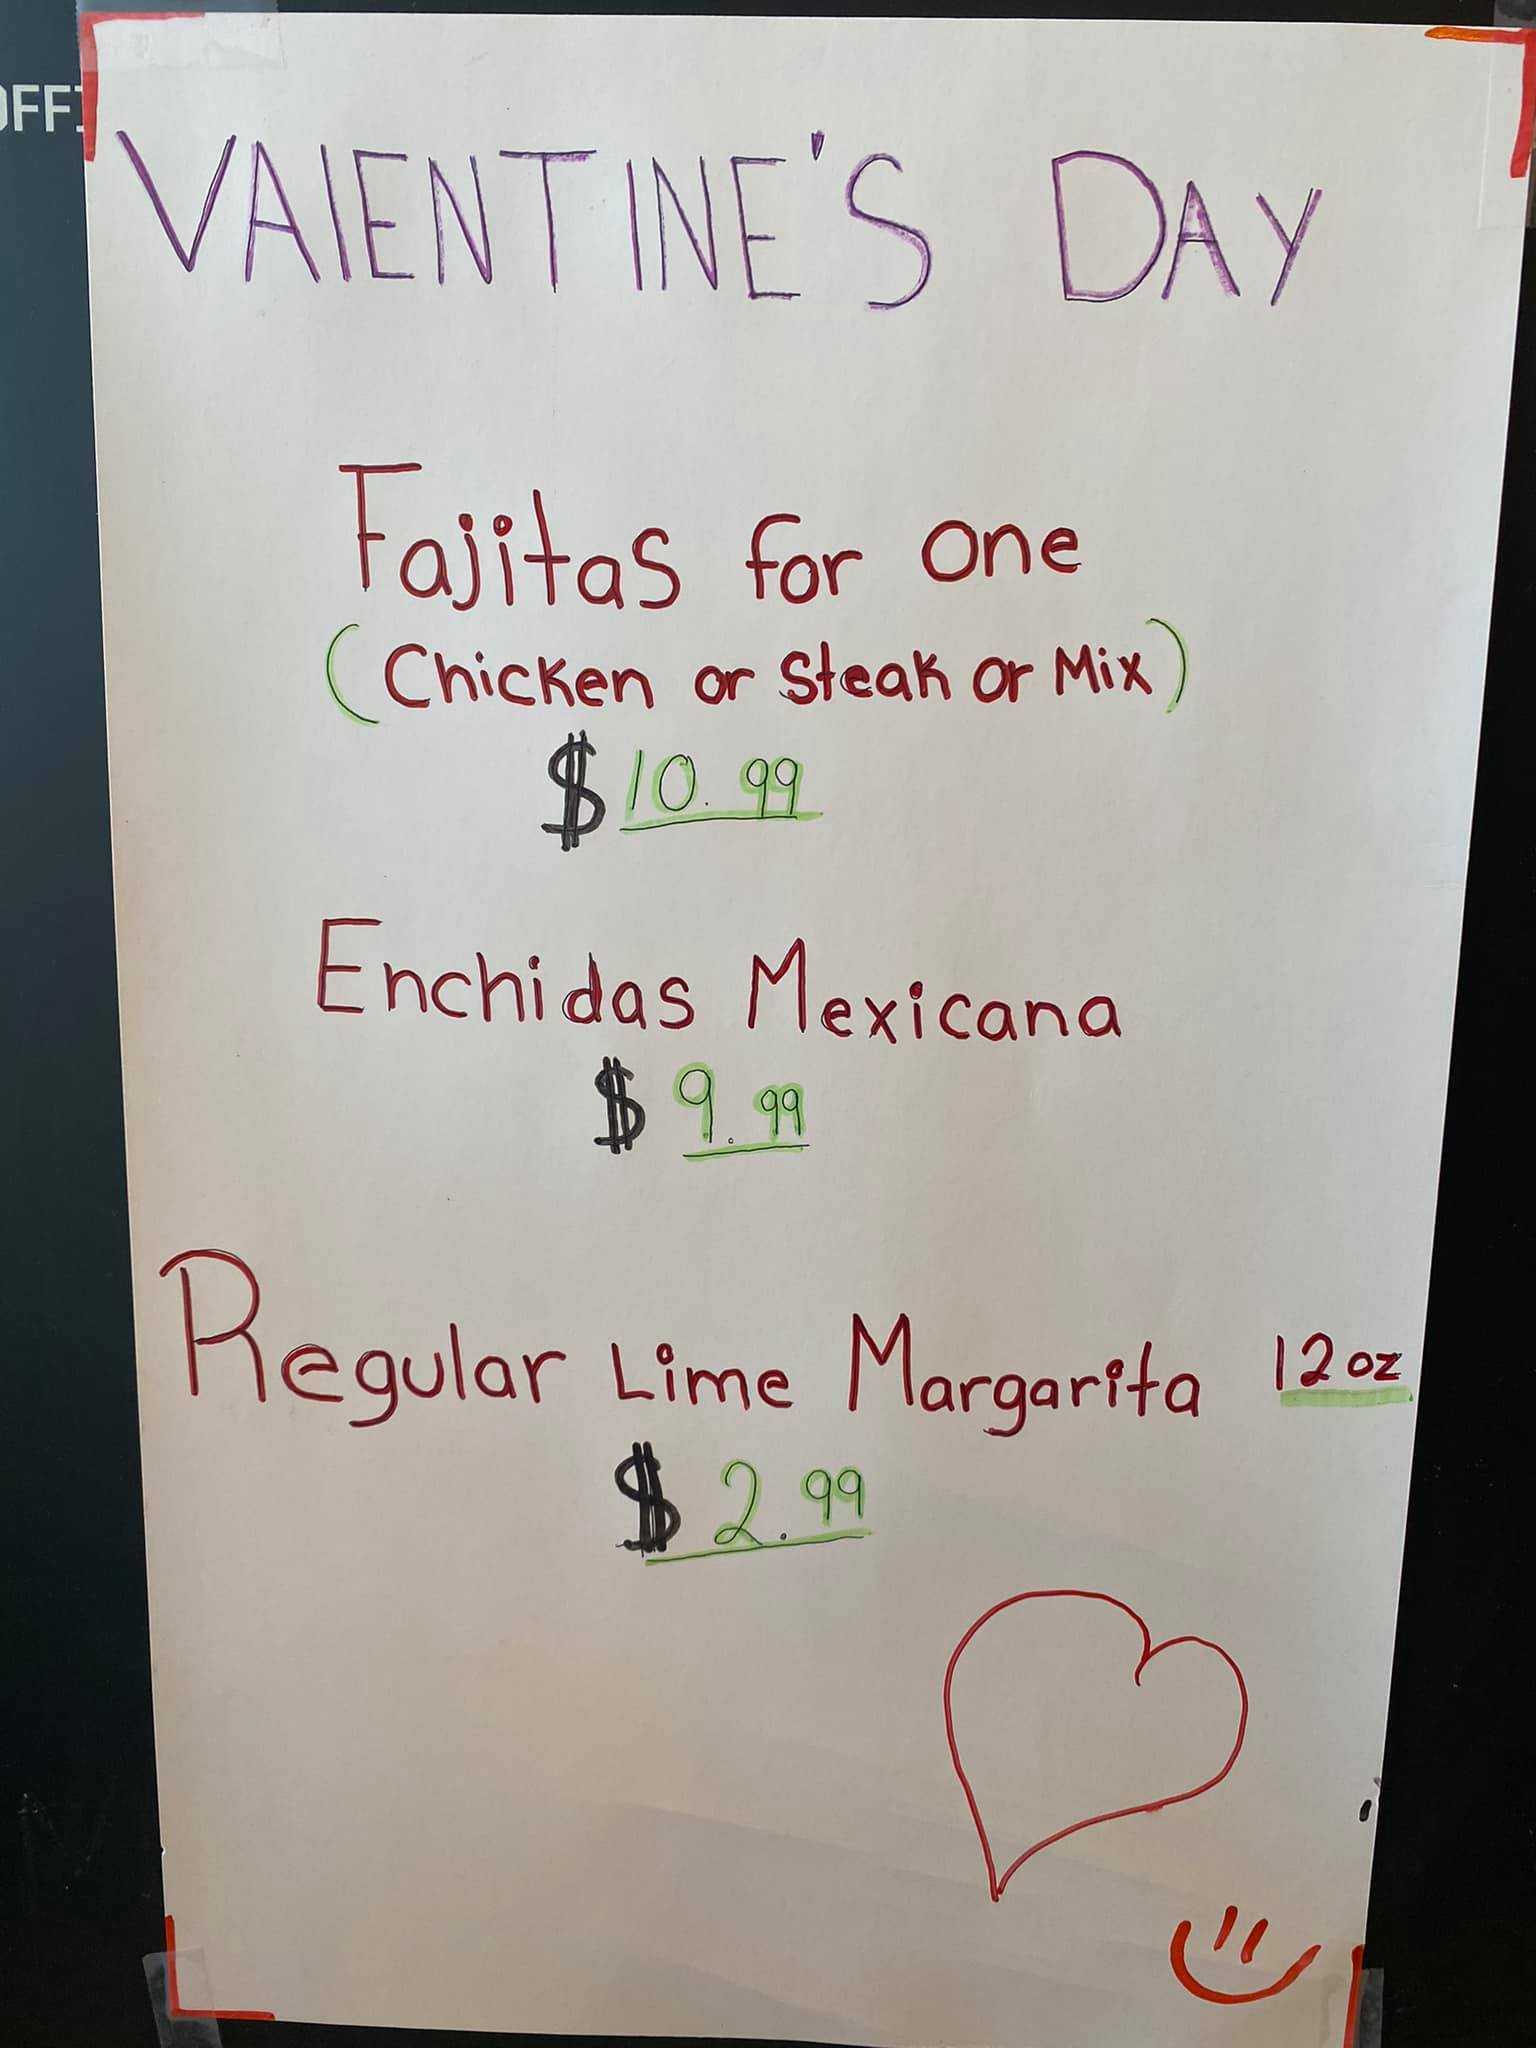 OFFI
VAlENTINE'S DAY
Fajitas for one
(Chicken or Steak or Mix)
$10.99
Enchidas Mexicana
$9.99
Regular Lime Margarita 12oz
$2.99